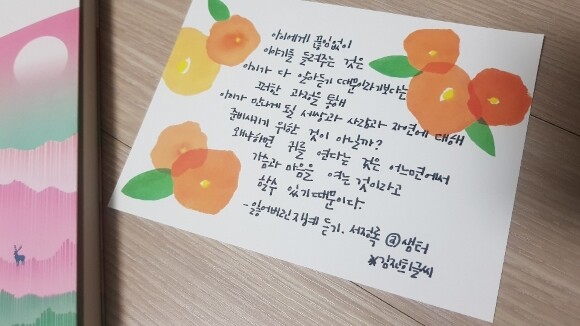 아이에게 끊임없이
이야기를 들려주는 것은
아이가 다 알아듣기 때문이라기보다는
그러한 과정을 통해
아이가 만나게 될 세상과 사람과 자연에 대해
준비시키기 위한 것이 아닐까?
왜냐하면 귀를 연다는 것은 어느면에서
가슴과 마음을 여는 것이라고
할수 있기 때문이다.
- 잃어버린 지혜 듣기. 서정록 @샘터